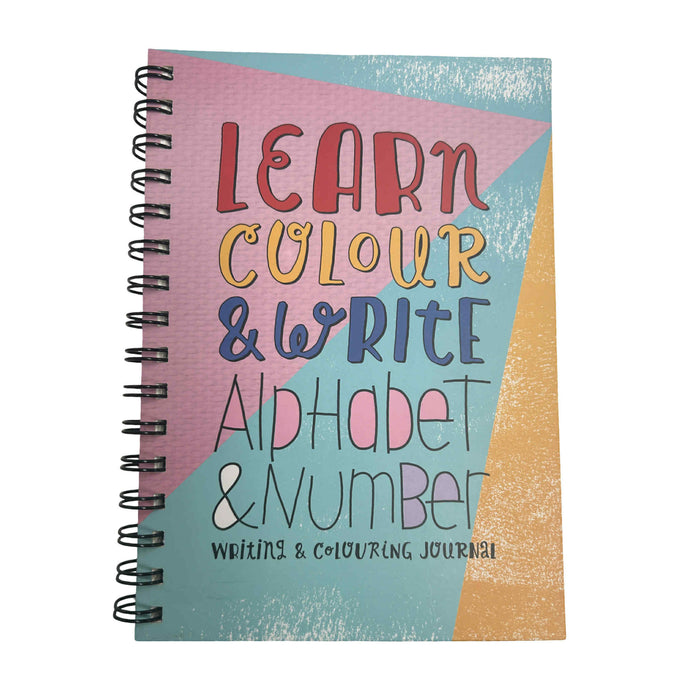 LEARN
COLOUR
& WRITE
AlpHabet
& NumBer
WRITING & COLOURING JOURNAL